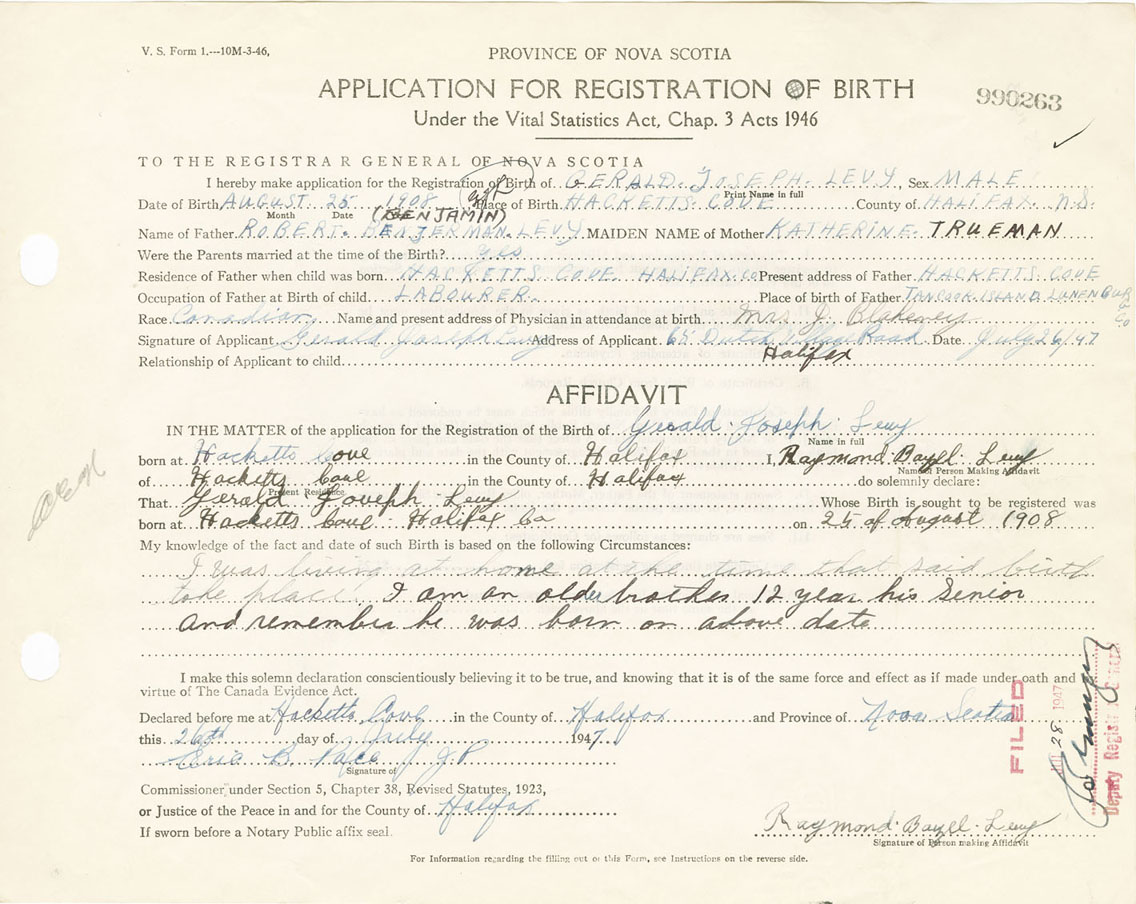 V. S. Form 1.---10M-3-46,
PROVINCE OF NOVA SCOTIA
APPLICATION FOR REGISTRATION OF BIRTH
990263
Under the Vital Statistics Act, Chap. 3 Acts 1946
TO THE REGISTRAR GENERAL OF NOVA SCOTIA
I hereby make application for the Registration of Birth of GERALD. JOSEPH. LEVY, Sex MALE
Print Name in full
Date of Birth AUGUST 25 1908 Place of Birth HACKETTS COVE County of HALIFAX N.S.
Month Date (BENJAMIN)
Name of Father ROBERT. BENJERMAN. LEVY MAIDEN NAME of Mother KATHERINE. TRUEMAN
Were the Parents married at the time of the Birth? Yes
Residence of Father when child was born HACKETTS COVE HALIFAX CO Present address of Father HACKETTS COVE
Occupation of Father at Birth of child LABOURER. Place of birth of Father TANCOOK ISLAND LUNENBURG Co
Race Canadian Name and present address of Physician in attendance at birth Mrs J. Blakeney
Signature of Applicant Gerald Joseph Levy Address of Applicant 65 Dutch Village Road Date July 26/47
Halifax
Relationship of Applicant to child
AFFIDAVIT
IN THE MATTER of the application for the Registration of the Birth of Gerald Joseph Levy
Name in full
born at Hacketts Cove in the County of Halifax I, Raymond Bazel Levy
Name in Person Making Affidavit
of Hacketts Cove in the County of Halifax do solemnly declare:
Present Residence
That Gerald Joseph Levy Whose Birth is sought to be registered was
born at Hacketts Cove Halifax Co on 25 of August 1908
My knowledge of the fact and date of such Birth is based on the following Circumstances:
I was living at home at the time that said birth
take place. I am an older brother 12 year his Senior
and remember he was born on above date
I make this solemn declaration conscientiously believing it to be true, and knowing that it is of the same force and effect as if made under oath and by
virtue of The Canada Evidence Act.
Declared before me at Hacketts Cove in the County of Halifax and Province of Nova Scotia
this 26th day of July 1947
Eric B. Pace J.P.
Signature of
Commissioner under Section 5, Chapter 38, Revised Statutes, 1923,
or Justice of the Peace in and for the County of Halifax
If sworn before a Notary Public affix seal.
Raymond Bazel Levy
Signature of Person making Affidavit
For Information regarding the filling out of this Form, see Instructions on the reverse side.
FILED
JUL 28 1947
Deputy Registrar General